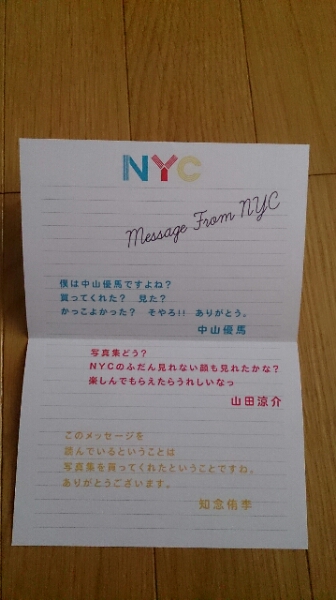 NYC
Message From NYC
僕は中山優馬ですよね?
買ってくれた? 見た?
かっこよかった? そやろ!! ありがとう。
中山優馬
写真集どう?
NYCのふだん見れない顔も見れたかな?
楽しんでもらえたらうれしいなっ
山田涼介
このメッセージを
読んでいるということは
写真集を買ってくれたということですね。
ありがとうございます。
知念侑李